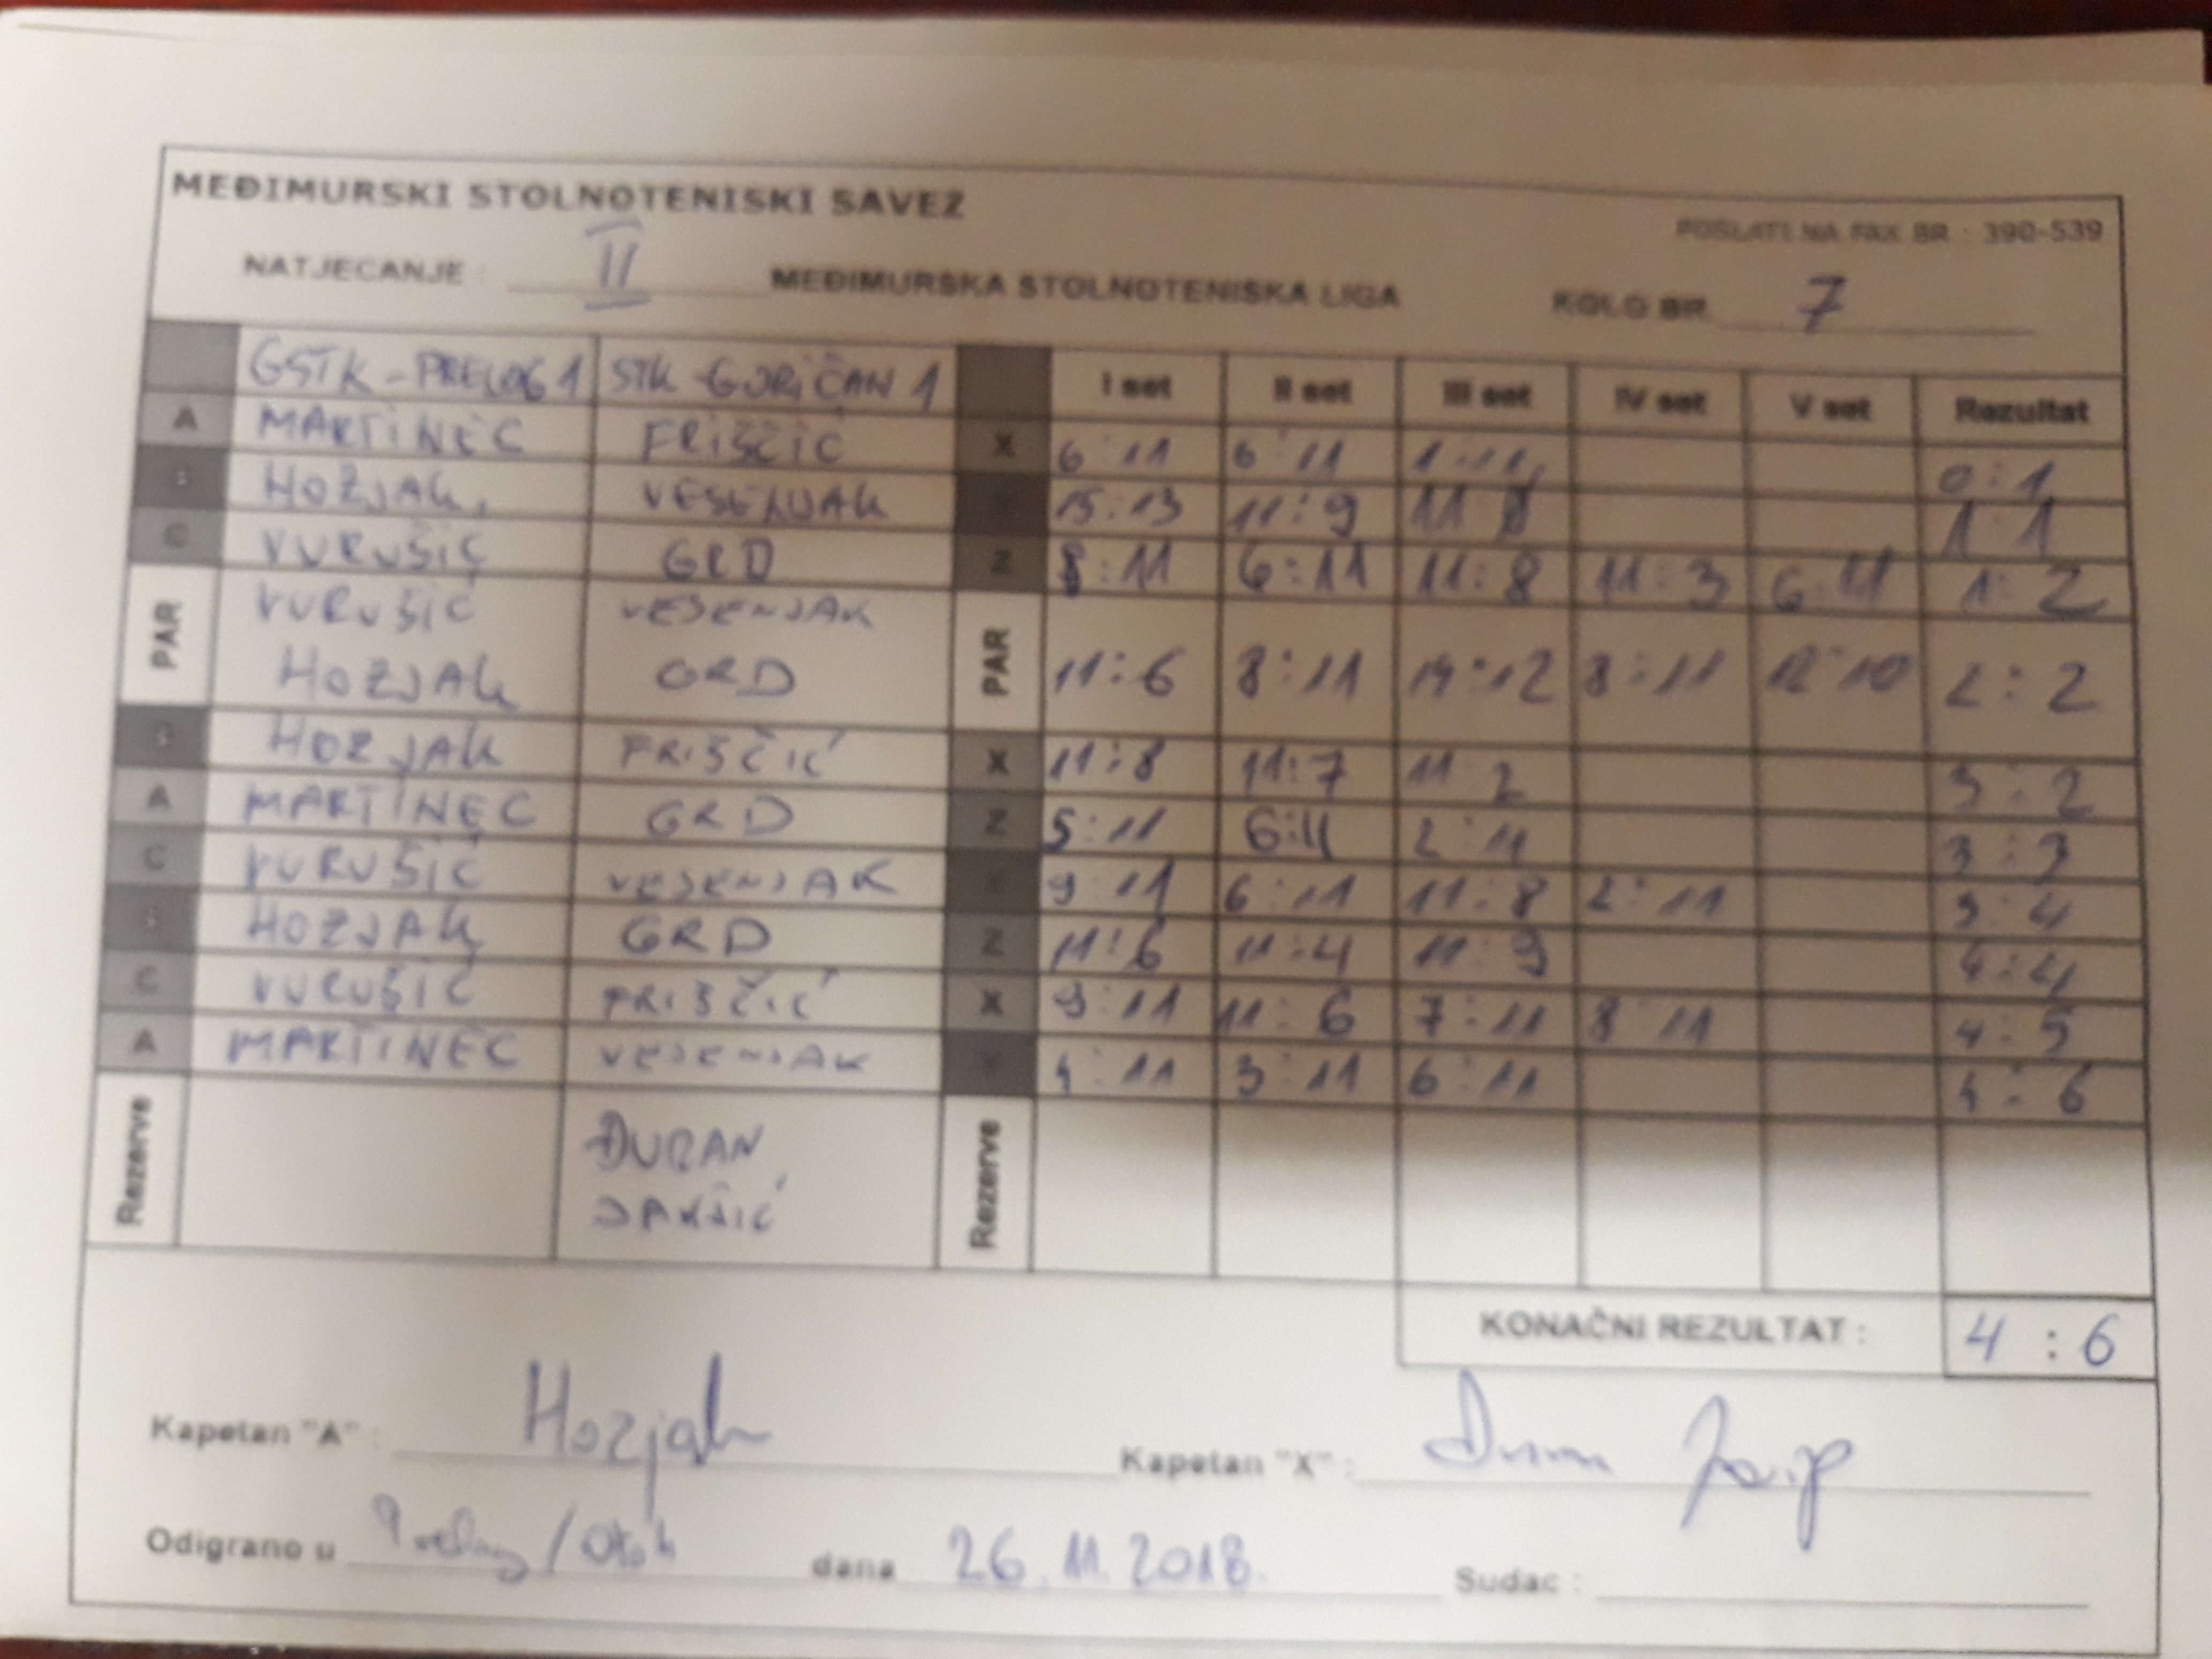 MEĐIMURSKI STOLNOTENISKI SAVEZ
POSLATI NA FAX BR : 390-539
NATJECANJE : II MEĐIMURSKA STOLNOTENISKA LIGA KOLO BR. 7
GSTK-PRELOG 1 STK-GORIČAN 1 I set II set III set IV set V set Rezultat
A MARTINEC FRIŠČIĆ X 6:11 6:11 1:11 0:1
B HOŽJAK VESENJAK Y 15:13 11:9 11:8 1:1
C VURUŠIĆ GRD Z 8:11 6:11 11:8 11:3 6:11 1:2
PAR VURUŠIĆ VESENJAK PAR
HOŽJAK GRD 11:6 8:11 14:12 8:11 12:10 2:2
B HOZJAK FRIŠČIĆ X 11:8 11:7 11:2 3:2
A MARTINEC GRD Z 5:11 6:11 2:11 3:3
C VURUŠIĆ VESENJAK Y 9:11 6:11 11:8 2:11 3:4
B HOZJAK GRD Z 11:6 11:4 11:9 4:4
C VURUŠIĆ FRIŠČIĆ X 9:11 11:6 7:11 8:11 4:5
A MARTINEC VESENJAK Y 4:11 3:11 6:11 4:6
Rezerve ĐURAN Rezerve
JAKŠIĆ
KONAČNI REZULTAT : 4:6
Kapetan "A" : Hozjak Kapetan "X" :
Odigrano u Prelog/Otok dana 26.11.2018. Sudac :